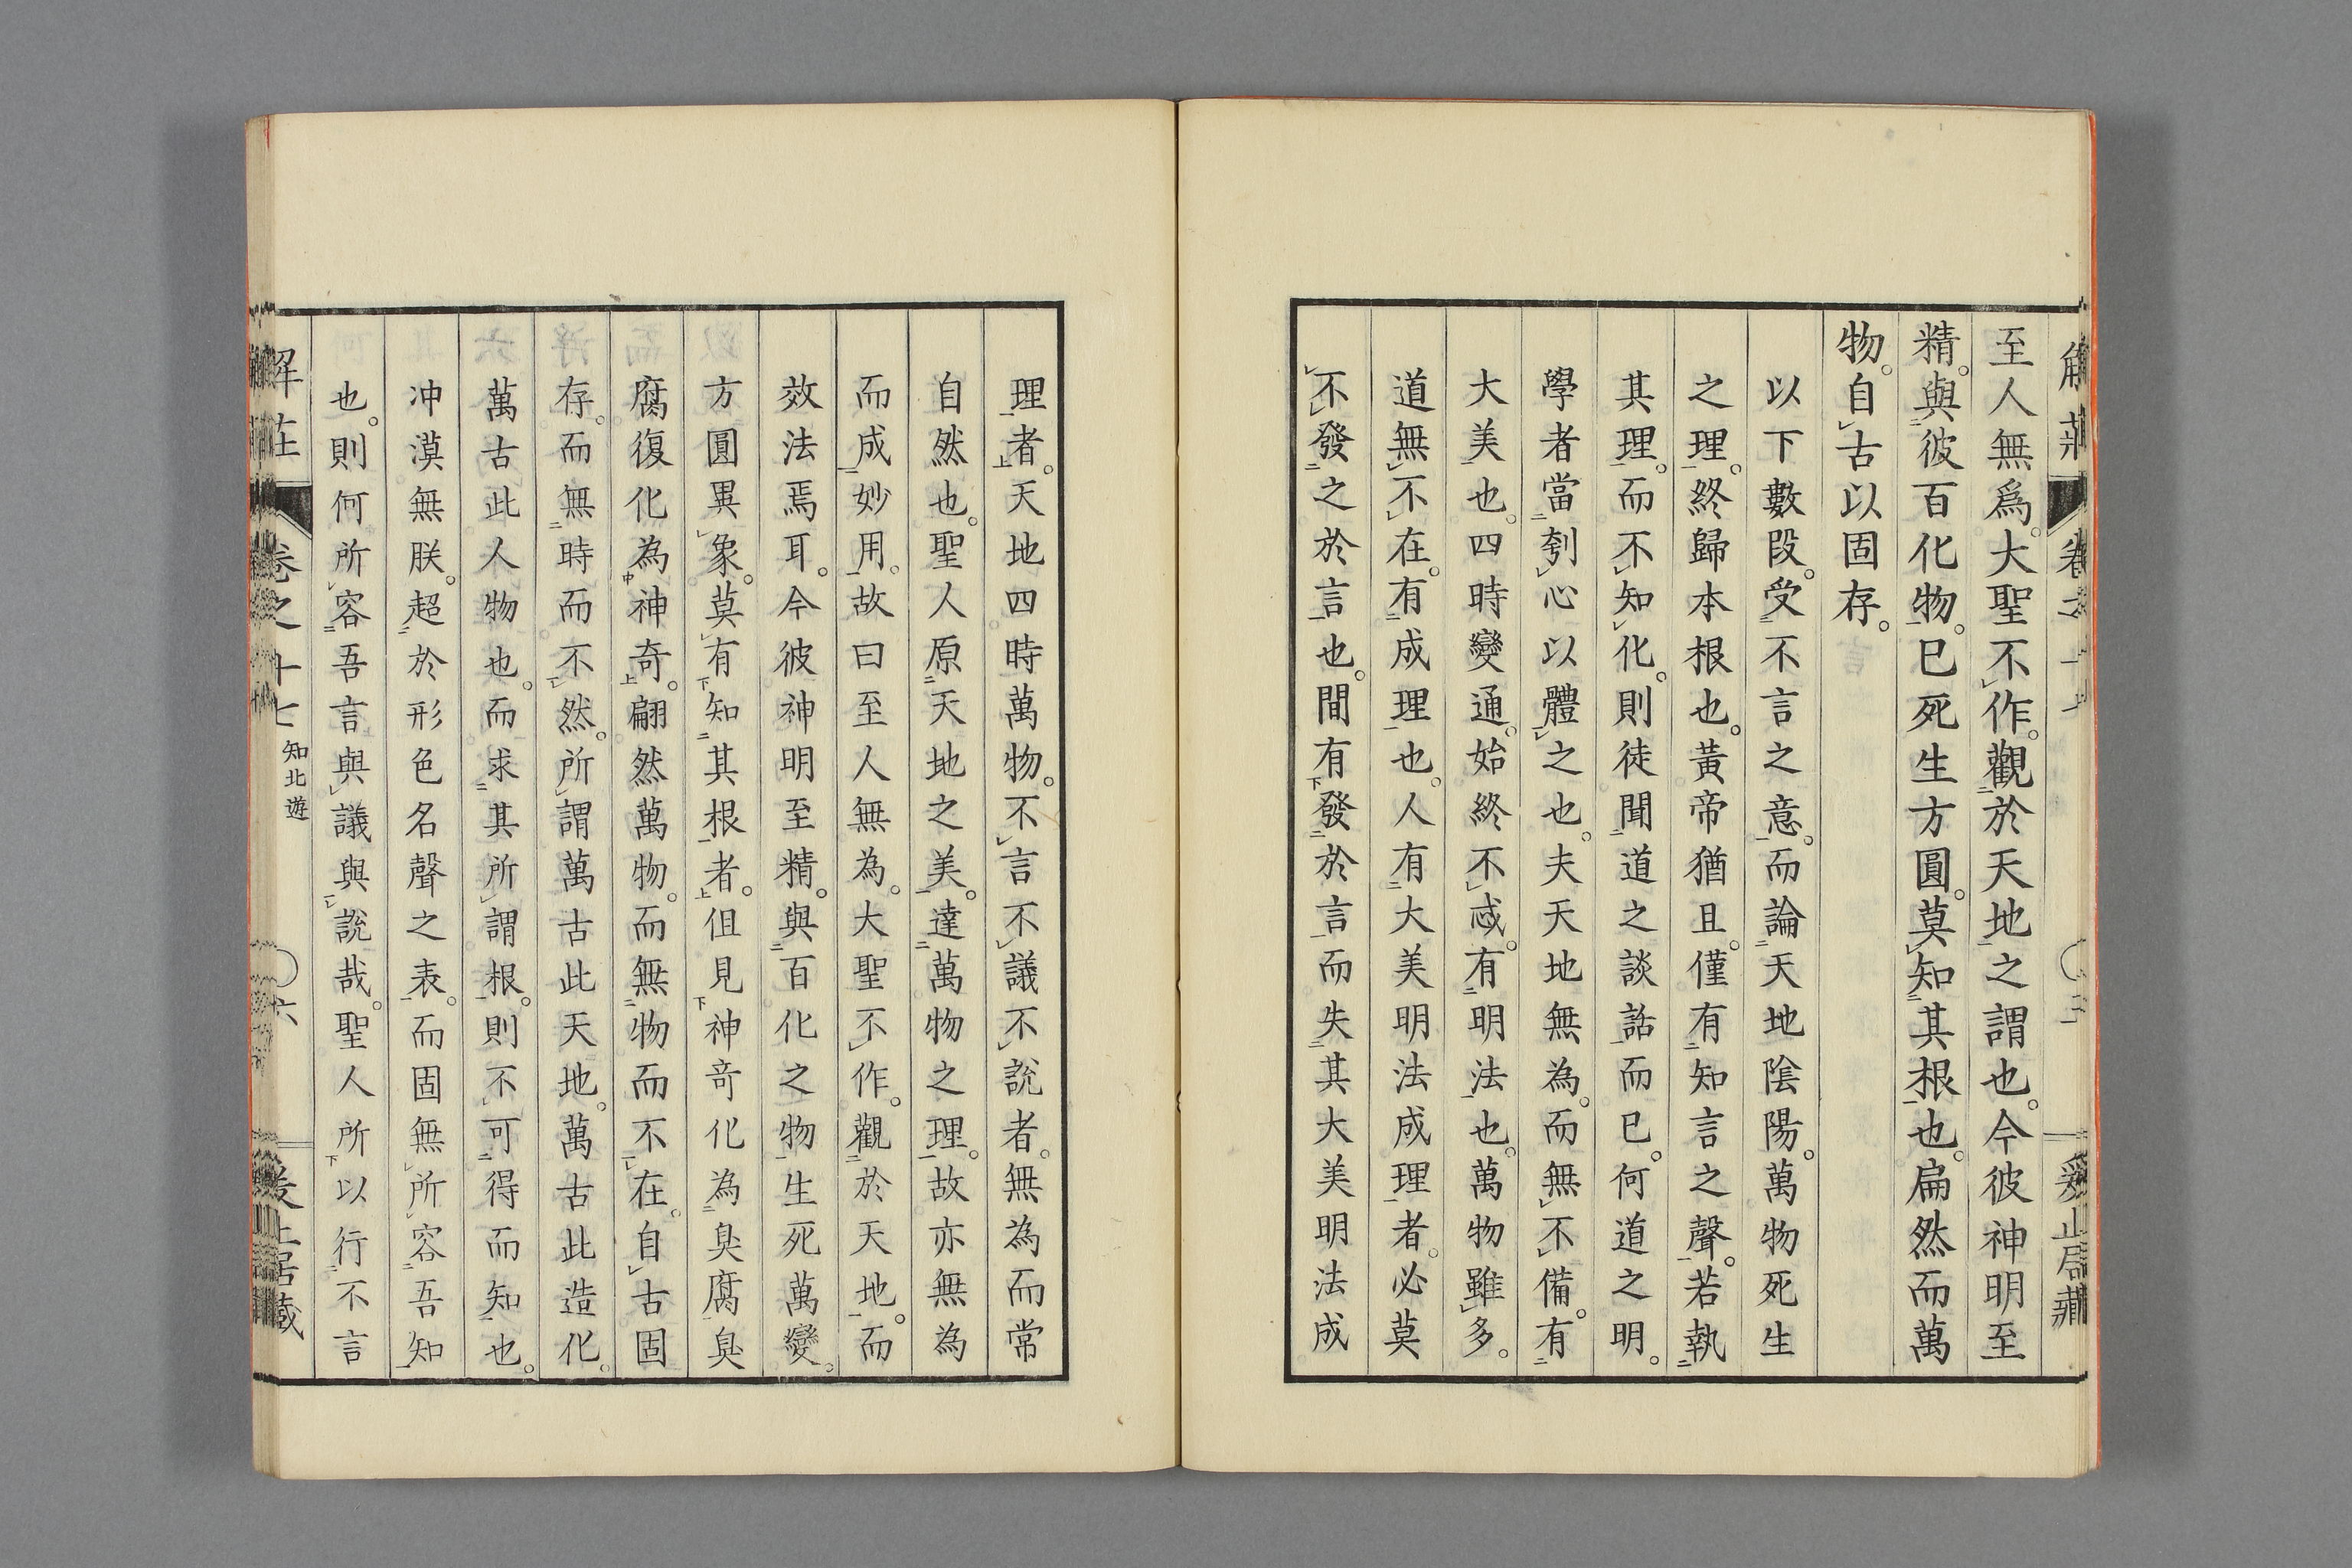 至人無爲。大聖不作。觀於天地之謂也。今彼神明至
精。與彼百化物。已死生方圓。莫知其根也。扁然而萬
物。自古以固存。
以下數段。受不言之意。而論天地陰陽。萬物死生
之理。終歸本根也。黃帝猶且。僅有知言之聲。若執
其理。而不知化。則徒聞道之談話而已。何道之明。
學者當刳心以體之也。夫天地無為。而無不備。有
大美也。四時變通。始終不忒。有明法也。萬物雖多。
道無不在。有成理也。人有大美明法成理者。必莫
不發之於言也。間有發於言而失其大美明法成
理者。天地四時萬物。不言不議不說者。無為而常
自然也。聖人原天地之美。達萬物之理。故亦無為
而成妙用。故曰至人無為。大聖不作。觀於天地。而
效法焉耳。今彼神明至精。與百化之物生死萬變。
方圓異象。莫有知其根者。但見神奇化為臭腐臭
腐復化為神奇。翩然萬物。而無物而不在。自古固
存。而無時而不然。所謂萬古此天地。萬古此造化。
萬古此人物也。而求其所謂根。則不可得而知也。
冲漠無朕。超於形色名聲之表。而固無所容吾知
也。則何所容吾言與議與說哉。聖人所以行不言
解莊
卷之十七
知北遊
六